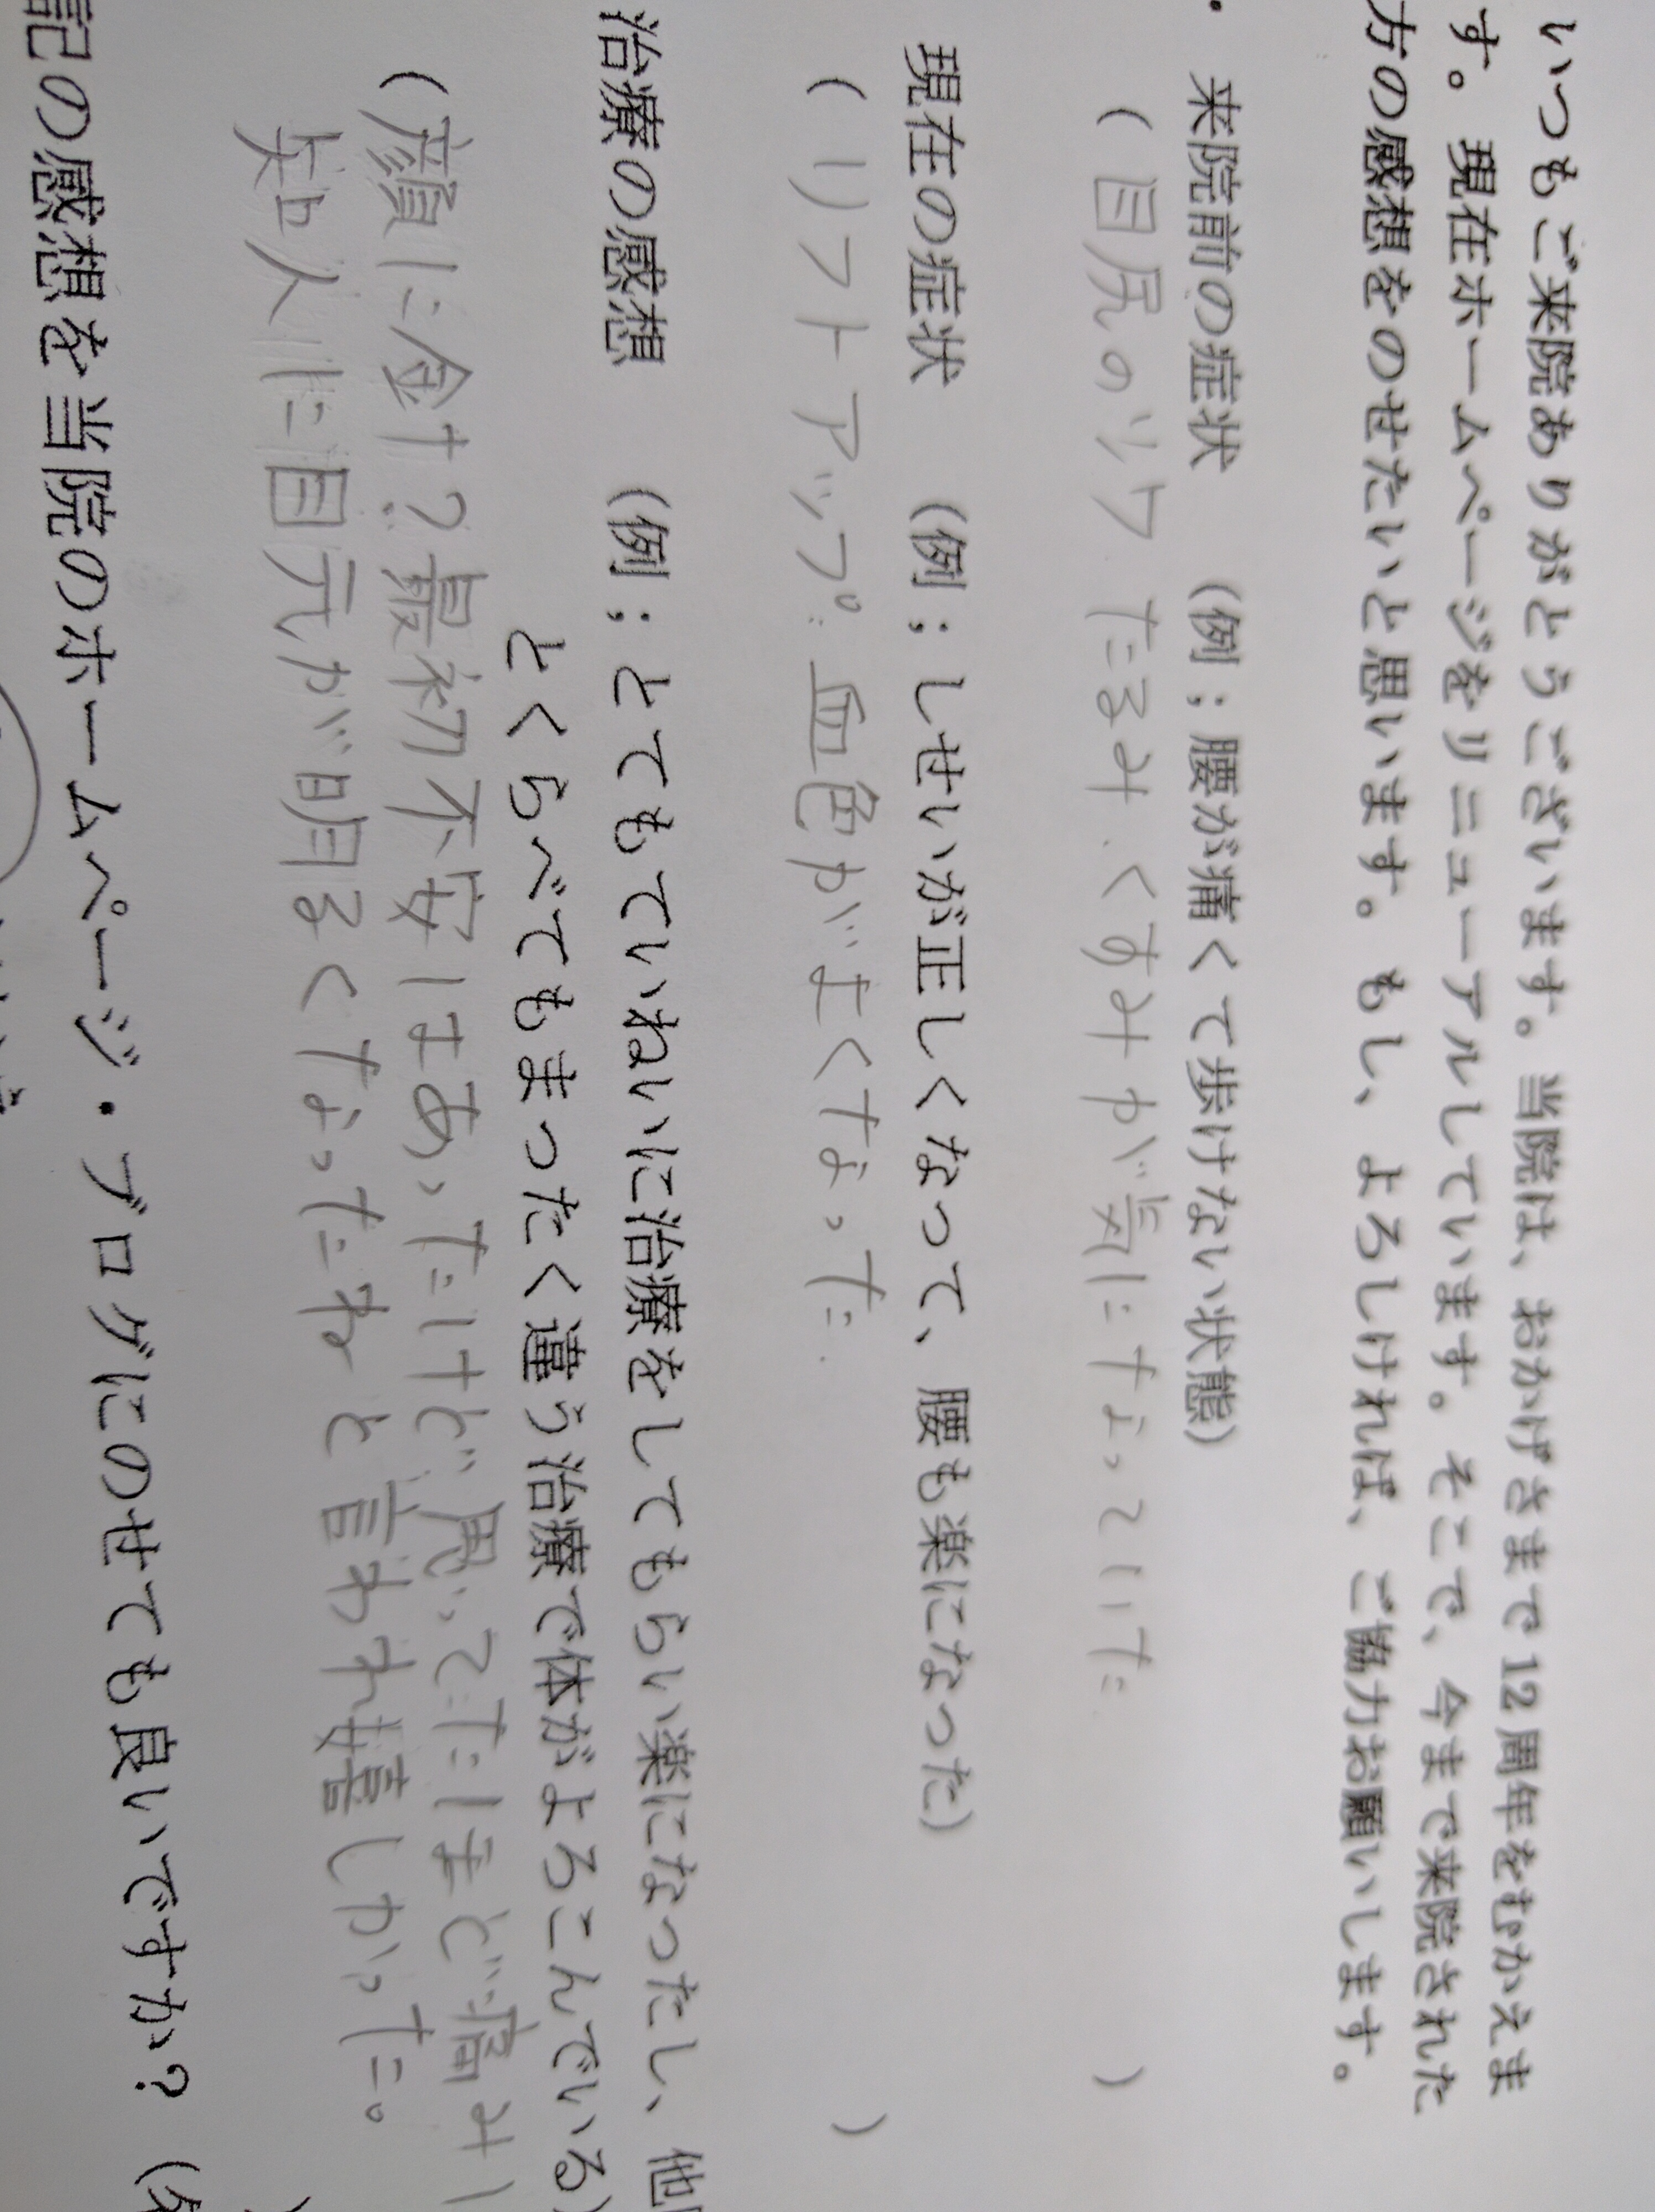 いつもご来院ありがとうございます。当院は、おかげさまで12周年をむかえま
す。現在ホームページをリニューアルしています。そこで、今まで来院された
方の感想をのせたいと思います。もし、よろしければ、ご協力お願いします。
・来院前の症状 (例；腰が痛くて歩けない状態)
(目尻のシワ. たるみ. くすみが気になっていた. )
現在の症状 (例；しせいが正しくなって、腰も楽になった)
(リフトアップ. 血色がよくなった. )
治療の感想 (例；とてもていねいに治療をしてもらい楽になったし、他
とくらべてもまったく違う治療で体がよろこんでいる)
(顔に針？最初不安はあったけど思ってたほど痛み
知人に目元が明るくなったねと言われ嬉しかった。
記の感想を当院のホームページ・ブログにのせても良いですか？ (